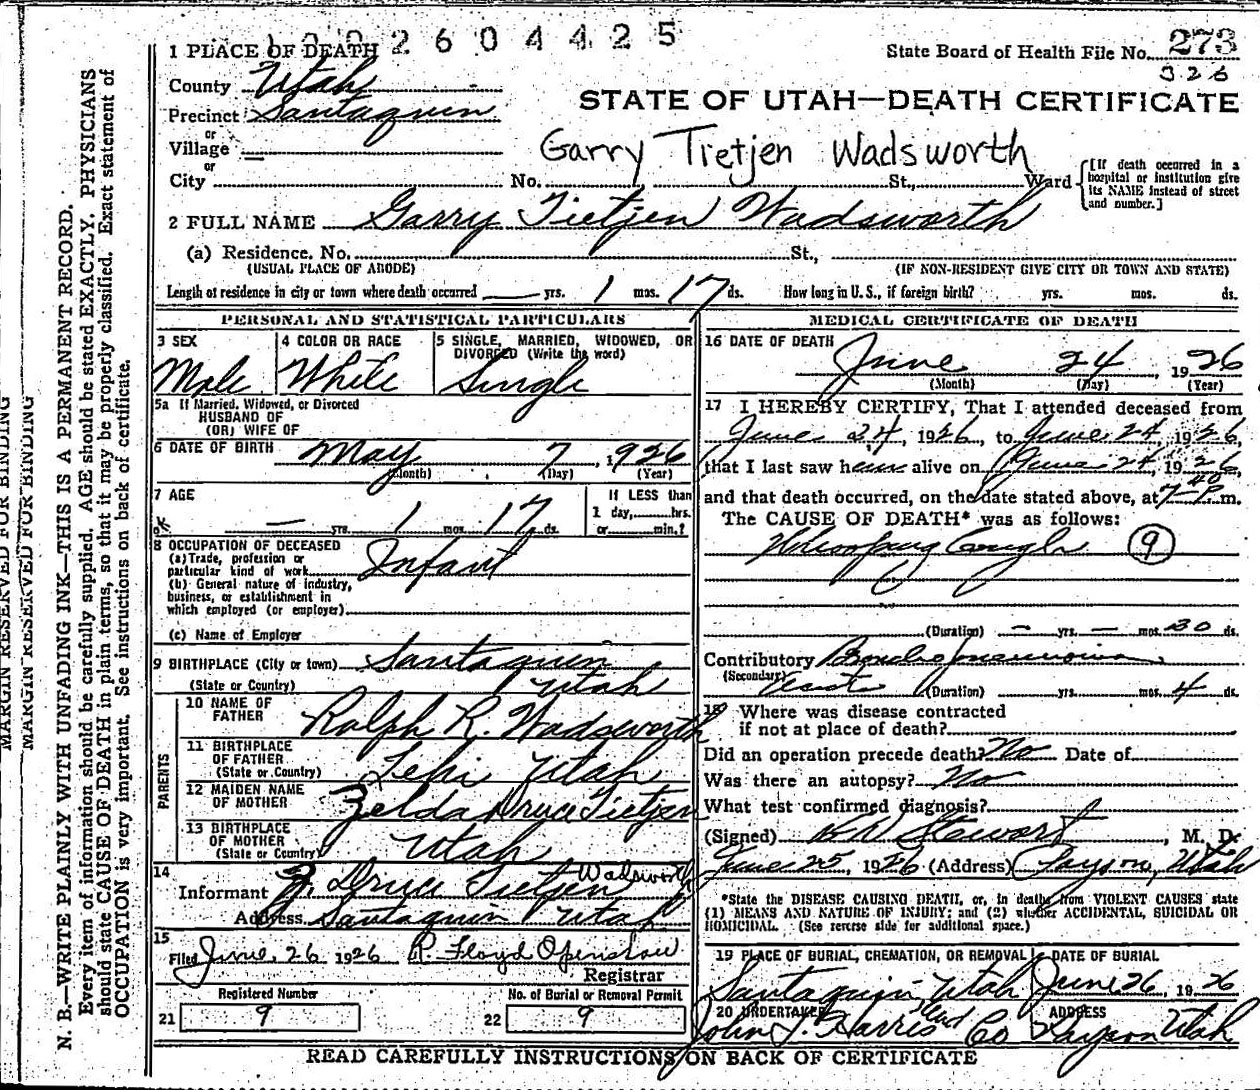 1 PLACE OF DEATH 2604425
State Board of Health File No. 273
326
County Utah
Precinct Santaquin
or
Village —
or
City No. St., Ward
[If death occurred in a hospital or institution give its NAME instead of street and number.]
STATE OF UTAH—DEATH CERTIFICATE
Garry Tietjen Wadsworth
2 FULL NAME Garry Tietjen Wadsworth
(a) Residence. No. St.,
(USUAL PLACE OF ABODE) (IF NON-RESIDENT GIVE CITY OR TOWN AND STATE)
Length of residence in city or town where death occurred — yrs. 1 mos. 17 ds. How long in U. S., if foreign birth? yrs. mos. ds.
PERSONAL AND STATISTICAL PARTICULARS
3 SEX
Male
4 COLOR OR RACE
White
5 SINGLE, MARRIED, WIDOWED, OR DIVORCED (Write the word)
Single
5a If Married, Widowed, or Divorced
HUSBAND OF
(OR) WIFE OF
6 DATE OF BIRTH May 7, 1926
(Month) (Day) (Year)
7 AGE
— yrs. 1 mos. 17 ds.
If LESS than
1 day, hrs.
or min.?
8 OCCUPATION OF DECEASED
(a) Trade, profession or
particular kind of work Infant
(b) General nature of industry,
business, or establishment in
which employed (or employer)
(c) Name of Employer
9 BIRTHPLACE (City or town) Santaquin
(State or Country) Utah
PARENTS
10 NAME OF
FATHER Ralph R. Wadsworth
11 BIRTHPLACE
OF FATHER
(State or Country) Lehi Utah
12 MAIDEN NAME
OF MOTHER Zelda Druce Tietjen
13 BIRTHPLACE
OF MOTHER
(State or Country) Utah
14
Informant Z. Druce Tietjen Wadsworth
Address Santaquin Utah
15
Filed June 26 1926 R. Floyd Openshaw
Registrar
Registered Number
21 9
No. of Burial or Removal Permit
22 9
MEDICAL CERTIFICATE OF DEATH
16 DATE OF DEATH
June 24, 1926
(Month) (Day) (Year)
17 I HEREBY CERTIFY, That I attended deceased from
June 24, 1926, to June 24, 1926,
that I last saw him alive on June 24, 1926,
and that death occurred, on the date stated above, at 7 40 P m.
The CAUSE OF DEATH* was as follows:
Whooping Cough 9
(Duration) — yrs. — mos. 30 ds.
Contributory Bronchopneumonia
(Secondary) acute (Duration) yrs. mos. 4 ds.
18 Where was disease contracted
if not at place of death?
Did an operation precede death? No Date of
Was there an autopsy? No
What test confirmed diagnosis?
(Signed) Stewart, M. D.
June 25, 1926 (Address) Payson, Utah
*State the DISEASE CAUSING DEATH, or, in deaths from VIOLENT CAUSES state
(1) MEANS AND NATURE OF INJURY; and (2) whether ACCIDENTAL, SUICIDAL OR
HOMICIDAL. (See reverse side for additional space.)
19 PLACE OF BURIAL, CREMATION, OR REMOVAL
Santaquin, Utah
DATE OF BURIAL
June 26, 1926
20 UNDERTAKER
John J. Harris and Co
ADDRESS
Payson Utah
READ CAREFULLY INSTRUCTIONS ON BACK OF CERTIFICATE
MARGIN RESERVED FOR BINDING
MARGIN RESERVED FOR BINDING
N. B.—WRITE PLAINLY WITH UNFADING INK—THIS IS A PERMANENT RECORD.
Every item of information should be carefully supplied. AGE should be stated EXACTLY. PHYSICIANS
should state CAUSE OF DEATH in plain terms, so that it may be properly classified. Exact statement of
OCCUPATION is very important. See instructions on back of certificate.